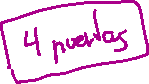 4 puertas